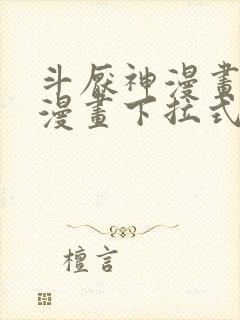 斗厭神漫畫
漫畫下拉式
檀言